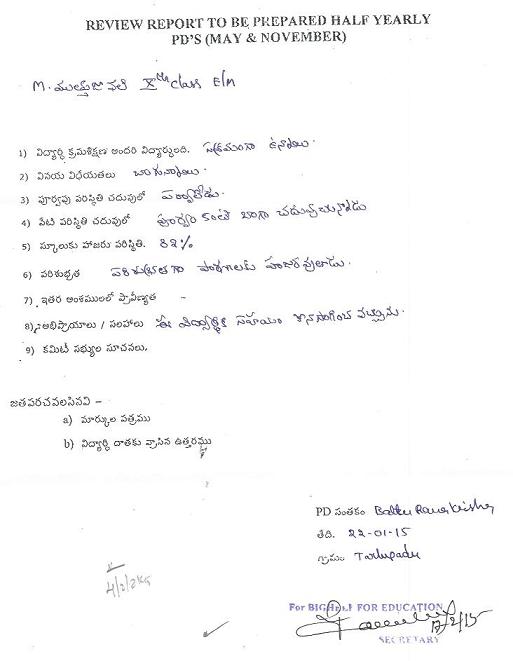 REVIEW REPORT TO BE PREPARED HALF YEARLY
PD'S (MAY & NOVEMBER)
M. Xth class E/M
1) విద్యార్థి క్రమశిక్షణ అందరి విద్యార్థులది. సక్రమంగా ఉన్నాయి.
2) వినయ విధేయతలు బాగున్నాయి.
3) పూర్వపు పరిస్థితి చదువులో పర్వాలేదు.
4) నేటి పరిస్థితి చదువులో పూర్వం కంటే బాగా చదువుచున్నాడు
5) స్కూలుకు హాజరు పరిస్థితి. 82%
6) పరిశుభ్రత పరిశుభ్రతగా పాఠశాలకు హాజరవుతాడు.
7) ఇతర అంశములలో ప్రావీణ్యత -
8) అభిప్రాయాలు / సలహాలు ఈ విద్యార్థికి సహాయం కొనసాగించ వచ్చును.
9) కమిటీ సభ్యుల సూచనలు.
జతపరచవలసినవి –
a) మార్కుల పత్రము
b) విద్యార్థి దాతకు వ్రాసిన ఉత్తరము
PD సంతకం Battu Rama Krishna
తేది. 22-01-15
గ్రామం Tarlupadu
For BIGHELP FOR EDUCATION
17/2/15
SECRETARY